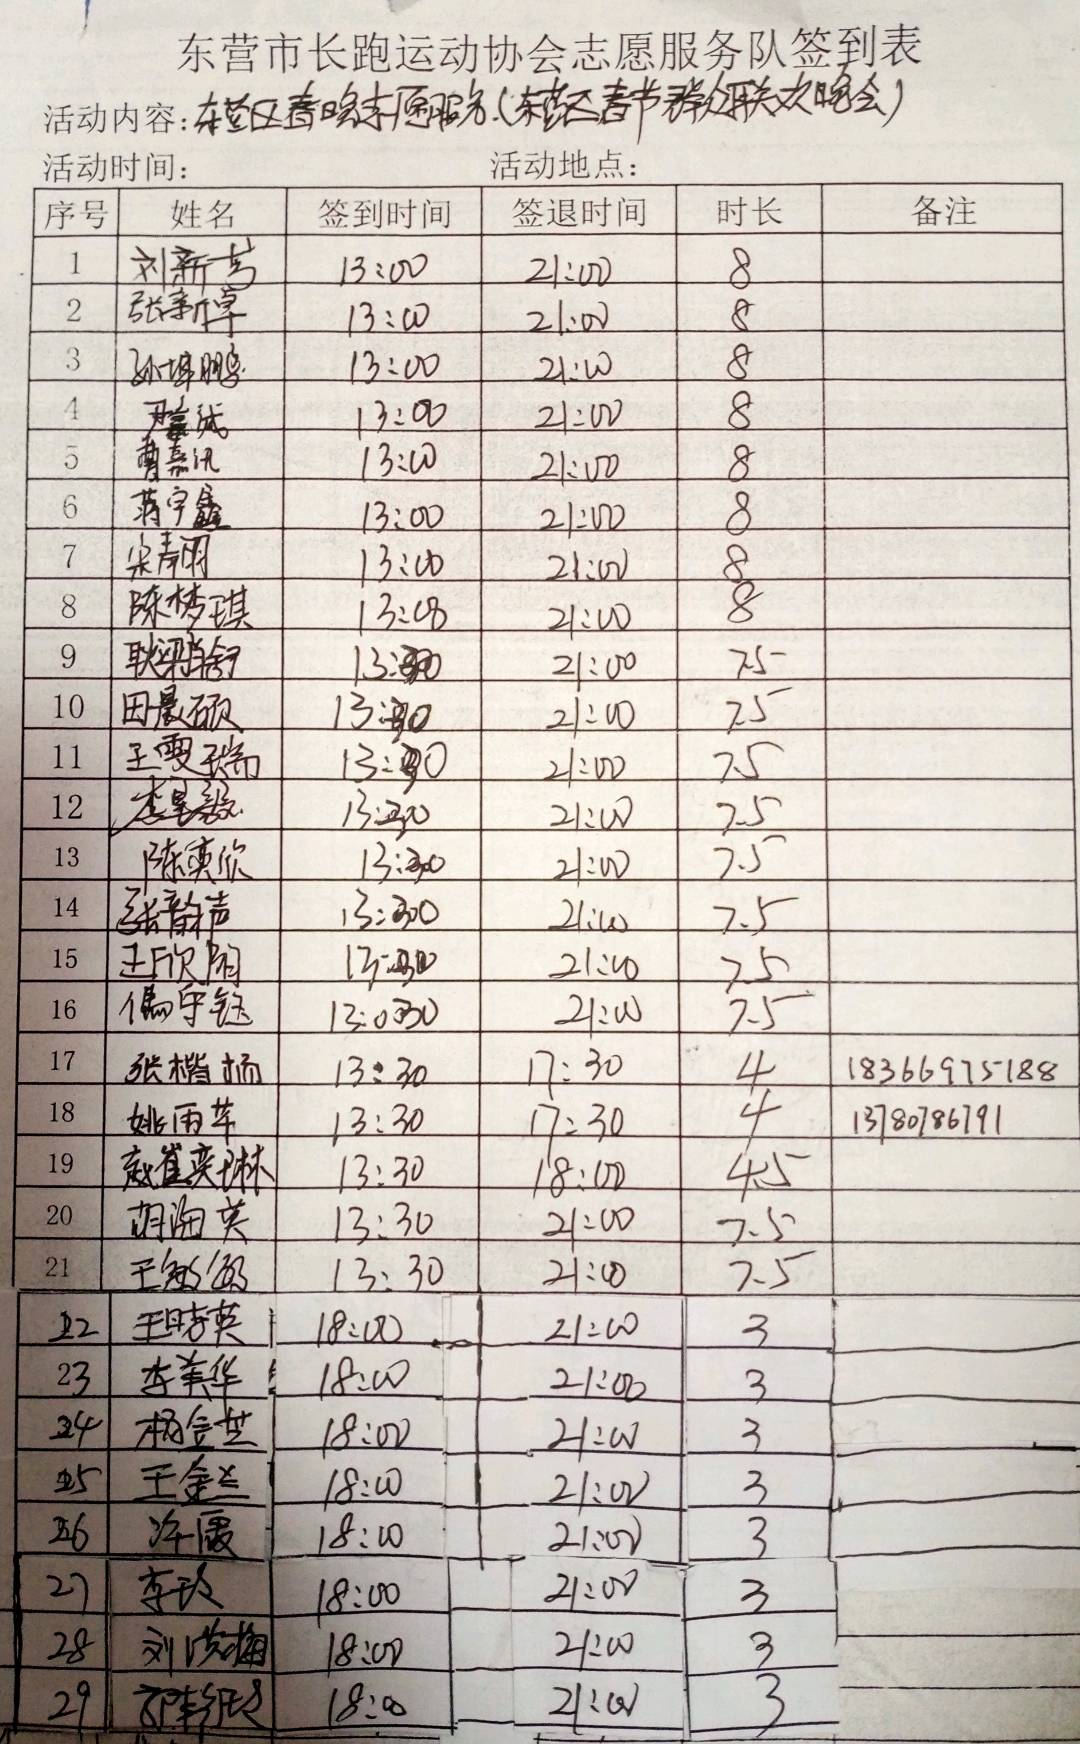 东营市长跑运动协会志愿服务队签到表
活动内容:东营区春晚志愿服务(东营区春节群众联欢晚会)
活动时间: 活动地点:
序号 姓名 签到时间 签退时间 时长 备注
1 刘新 13:00 21:00 8
2 张新 13:00 21:00 8
3 孙 鹏 13:00 21:00 8
4 13:00 21:00 8
5 曹嘉汛 13:00 21:00 8
6 蒋宇鑫 13:00 21:00 8
7 宋 雨 13:00 21:00 8
8 陈梦琪 13:00 21:00 8
9 耿梁 舒 13:30 21:00 7.5
10 田晨硕 13:30 21:00 7.5
11 王雯瑞 13:30 21:00 7.5
12 李 13:30 21:00 7.5
13 陈奕欣 13:30 21:00 7.5
14 张韵声 13:30 21:00 7.5
15 王欣 13:30 21:00 7.5
16 宇钰 13:30 21:00 7.5
17 张楷杨 13:30 17:30 4 18366975188
18 姚雨苹 13:30 17:30 4 13780786791
19 赵崔奕琳 13:30 18:00 4.5
20 胡海英 13:30 21:00 7.5
21 王敏 13:30 21:00 7.5
22 王晓英 18:00 21:00 3
23 李美华 18:00 21:00 3
24 杨金芝 18:00 21:00 3
25 王金兰 18:00 21:00 3
26 许霞 18:00 21:00 3
27 李玲 18:00 21:00 3
28 刘洪梅 18:00 21:00 3
29 18:00 21:00 3